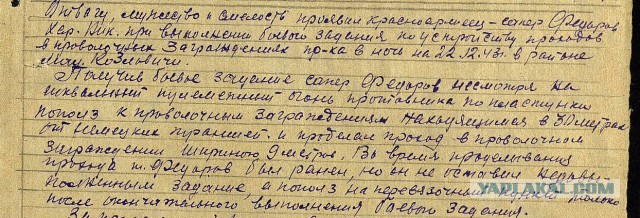 Отвагу, мужество и смелость проявил красноармеец-сапер Федоров
Хар. Ник. при выполнении боевого задания по устройству проходов
в проволочных заграждениях пр-ка в ночь на 22.12.43 г. в районе
Мал. Козловичи.
Получив боевое задание сапер Федоров несмотря на
шквальный пулеметный огонь противника по пластунски
пополз к проволочным заграждениям находящимся в 30 метрах
от немецких траншей и проделал проход в проволочном
заграждении шириною 9 метров. Во время проделывания
прохода т. Федоров был ранен, но он не оставил
полненным задание, а пополз на перевязочный только
после окончательного выполнения боевого задания.
YAPLAKAL.COM